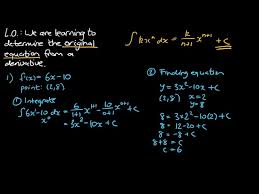 L.O.: We are learning to
determine the original
equation from a
derivative.
∫ kxⁿ dx = k/(n+1) xⁿ⁺¹ + c
1) f'(x) = 6x - 10
point: (2,8)
① Integrate
∫ 6x¹ - 10 dx = 6/(1+1) x¹⁺¹ - 10/(0+1) x⁰⁺¹ + c
x⁰
= 3x² - 10x + c
② Finding equation
y = 3x² - 10x + c
x = 2
y = 8
8 = 3×2² - 10(2) + c
8 = 12 - 20 + c
8 = -8 + c
8 + 8 = c
c = 16